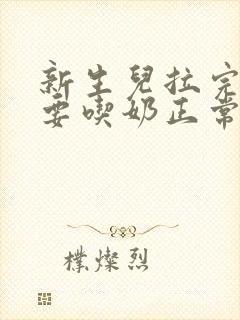 新生兒拉完
要喫奶正常
樸燦烈